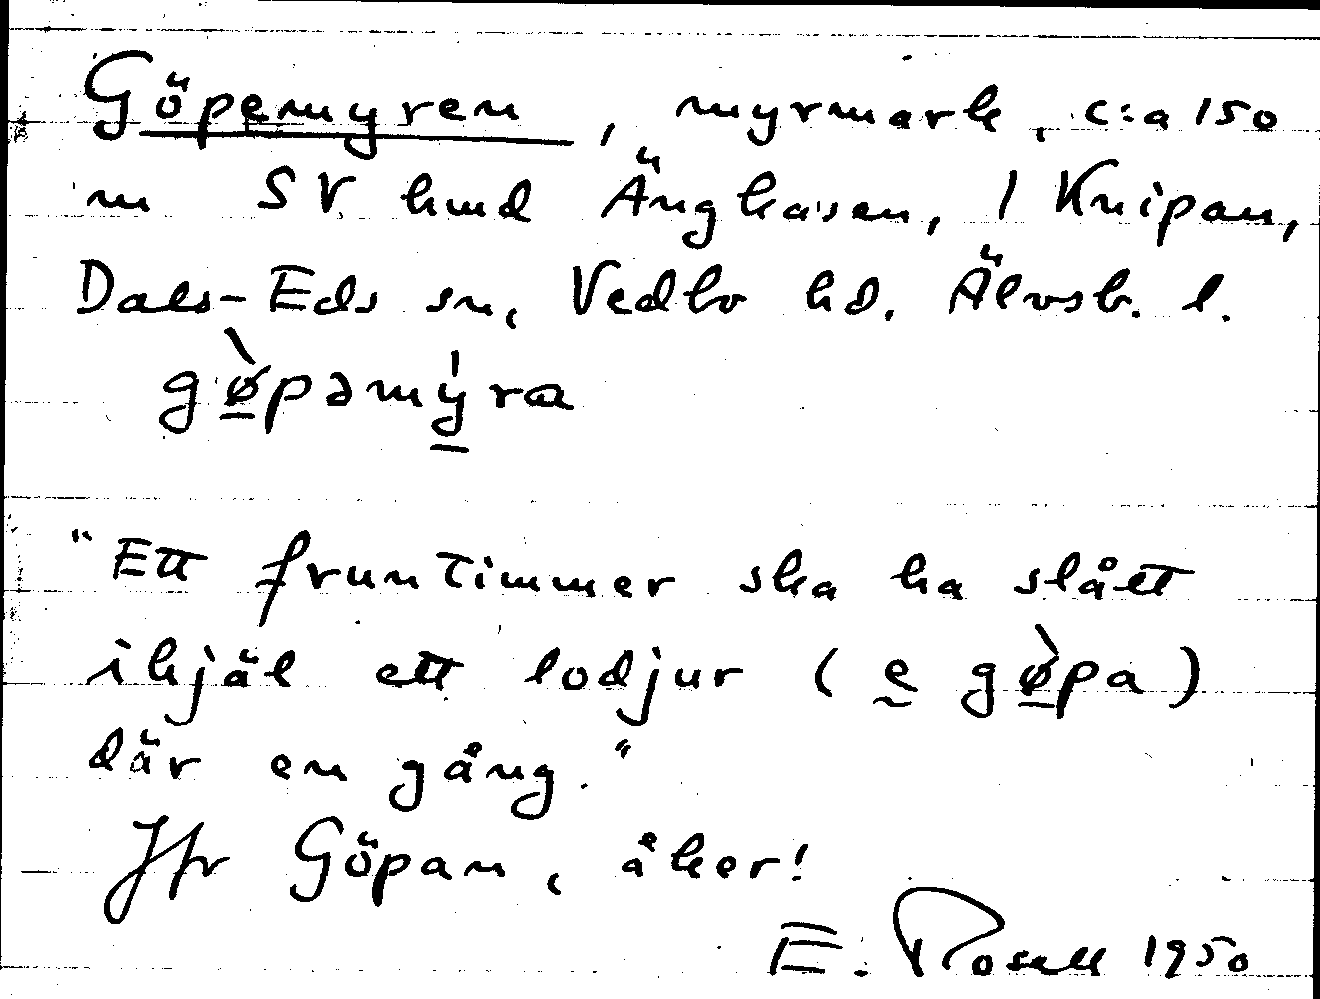 Göpemyren, myrmark, c:a 150
m SV hmd Ängkasen, 1 Knipan,
Dals-Eds sn, Vedbo hd. Älvsb. l.
gø̀pəmýra
"Ett fruntimmer ska ha slått
ihjäl ett lodjur (e gø̀pa)
där en gång."
Jfr Göpan, åker!
E. Rosell 1950